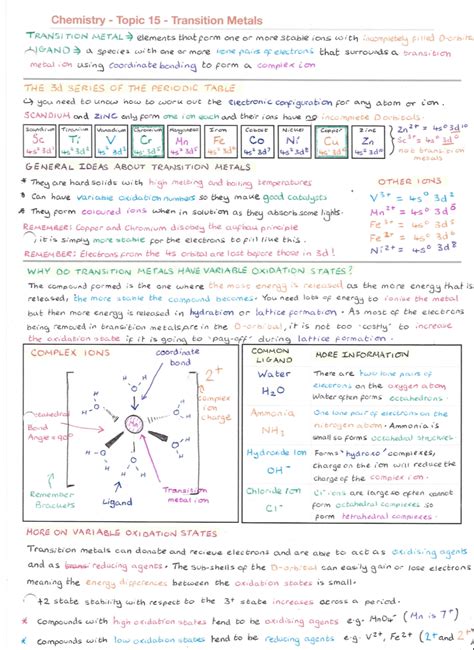 Chemistry - Topic 15 - Transition Metals
TRANSITION METAL → elements that form one or more stable ions with incompletely filled D-orbitals
LIGAND → a species with one or more lone pairs of electrons that surrounds a transition
metal ion using coordinate bonding to form a complex ion
THE 3d SERIES OF THE PERIODIC TABLE
↳ you need to know how to work out the electronic configuration for any atom or ion.
SCANDIUM and ZINC only form one ion each and their ions have no incomplete D-orbitals.
Scandium Titanium Vanadium Chromium Manganese Iron Cobalt Nickel Copper Zinc
Sc Ti V Cr Mn Fe Co Ni Cu Zn
4s² 3d¹ 4s² 3d² 4s² 3d³ 4s¹ 3d⁵ 4s² 3d⁵ 4s² 3d⁶ 4s² 3d⁷ 4s² 3d⁸ 4s¹ 3d¹⁰ 4s² 3d¹⁰
Zn²⁺ = 4s⁰ 3d¹⁰
Sc³⁺ = 4s⁰ 3d⁰
not transition metals
GENERAL IDEAS ABOUT TRANSITION METALS
* They are hard solids with high melting and boiling temperatures
* Can have variable oxidation numbers so they make good catalysts
* They form coloured ions when in solution as they absorb some light.
REMEMBER: Copper and Chromium disobey the aufbau principle
it is simply more stable for the electrons to fill like this.
REMEMBER: Electrons from the 4s orbital are lost before those in 3d!
OTHER IONS
V³⁺ = 4s⁰ 3d²
Mn²⁺ = 4s⁰ 3d⁵
Fe²⁺ = 4s⁰ 3d⁶
Fe³⁺ = 4s⁰ 3d⁵
Ni²⁺ = 4s⁰ 3d⁸
WHY DO TRANSITION METALS HAVE VARIABLE OXIDATION STATES?
The compound formed is the one where the most energy is released as the more energy that is
released, the more stable the compound becomes. You need lots of energy to ionise the metal
but then more energy is released in hydration or lattice formation. As most of the electrons
being removed in transition metals are in the D-orbital, it is not too 'costly' to increase
the oxidation state if it is going to 'pay-off' during lattice formation.
COMPLEX IONS
coordinate bond
2+
complex ion charge
Octahedral
Bond Angle = 90°
Mn
Remember Brackets
Ligand
Transition metal ion
COMMON LIGAND
MORE INFORMATION
Water
H₂O
There are two lone pairs of
electrons on the oxygen atom
Water often forms octahedrons.
Ammonia
NH₃
One lone pair of electrons on the
nitrogen atom. Ammonia is
small so forms octahedral structures
Hydroxide Ion
OH⁻
Forms 'hydroxo' complexes,
Charge on the ion will reduce the
charge of the complex ion.
Chloride Ion
Cl⁻
Cl⁻ ions are large so often cannot
form octahedral complexes so
form tetrahedral complexes
MORE ON VARIABLE OXIDATION STATES
Transition metals can donate and recieve electrons and are able to act as oxidising agents
and as reducing agents. The sub-shells of the D-orbital can easily gain or lose electrons
meaning the energy differences between the oxidation states is small.
+2 state stability with respect to the 3+ state increases across a period.
* Compounds with high oxidation states tend to be oxidising agents e.g. MnO₄⁻ (Mn is 7⁺)
* Compounds with low oxidation states tend to be reducing agents e.g. V²⁺, Fe²⁺